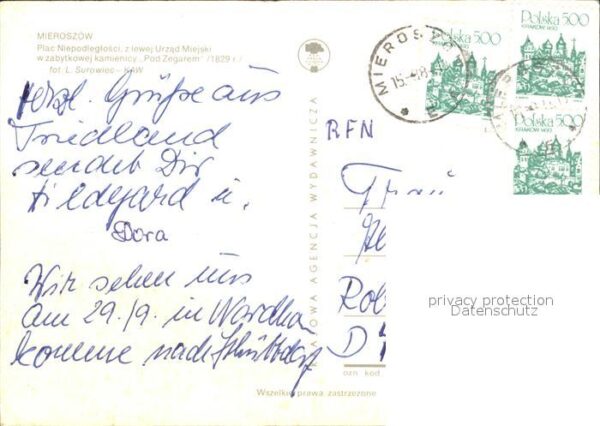 MIEROSZÓW
Plac Niepodległości, z lewej Urząd Miejski
w zabytkowej kamienicy „Pod Zegarem" /1829 r./
fot. L. Surowiec - KAW
Herzl. Grüße aus
Friedland
sendet Dir
Hildgard u.
Dora
Wir sehen uns
am 29./9. in
komme nach Schüttdorf
KRAJOWA AGENCJA WYDAWNICZA
RFN
Frau
D
ozn kod
Wszelkie prawa zastrzeżone
MIEROSZ
Polska 500
KRAKÓW 1493
Polska 500
KRAKÓW 1493
Polska 500
KRAKÓW 1493
privacy protection
Datenschutz